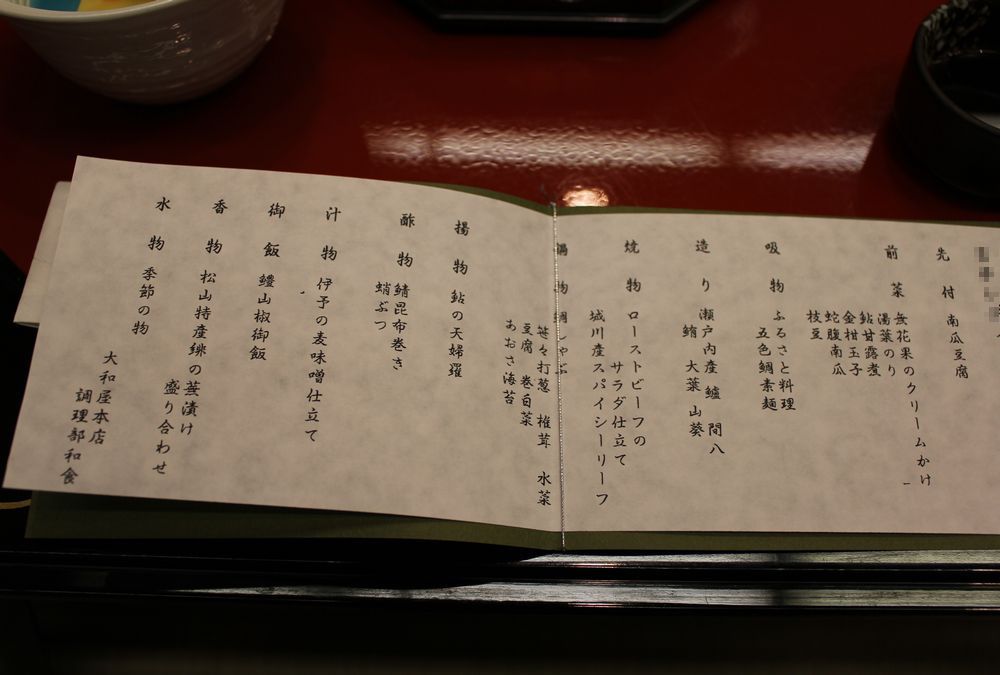 先付 南瓜豆腐
前菜 無花果のクリームかけ
湯葉のり
鮎甘露煮
金柑玉子
蛇腹南瓜
枝豆
吸物 ふるさと料理
五色鯛素麺
造り 瀬戸内産 鱸 間八
鮪 大葉 山葵
焼物 ローストビーフの
サラダ仕立て
城川産スパイシーリーフ
鍋物 鯛しゃぶ
笹々打葱 椎茸 水菜
豆腐 巻白菜
あおさ海苔
揚物 鮎の天婦羅
酢物 鯖昆布巻き
蛸ぶつ
汁物 伊予の麦味噌仕立て
御飯 鱧山椒御飯
香物 松山特産緋の蕪漬け
盛り合わせ
水物 季節の物
大和屋本店
調理部和食